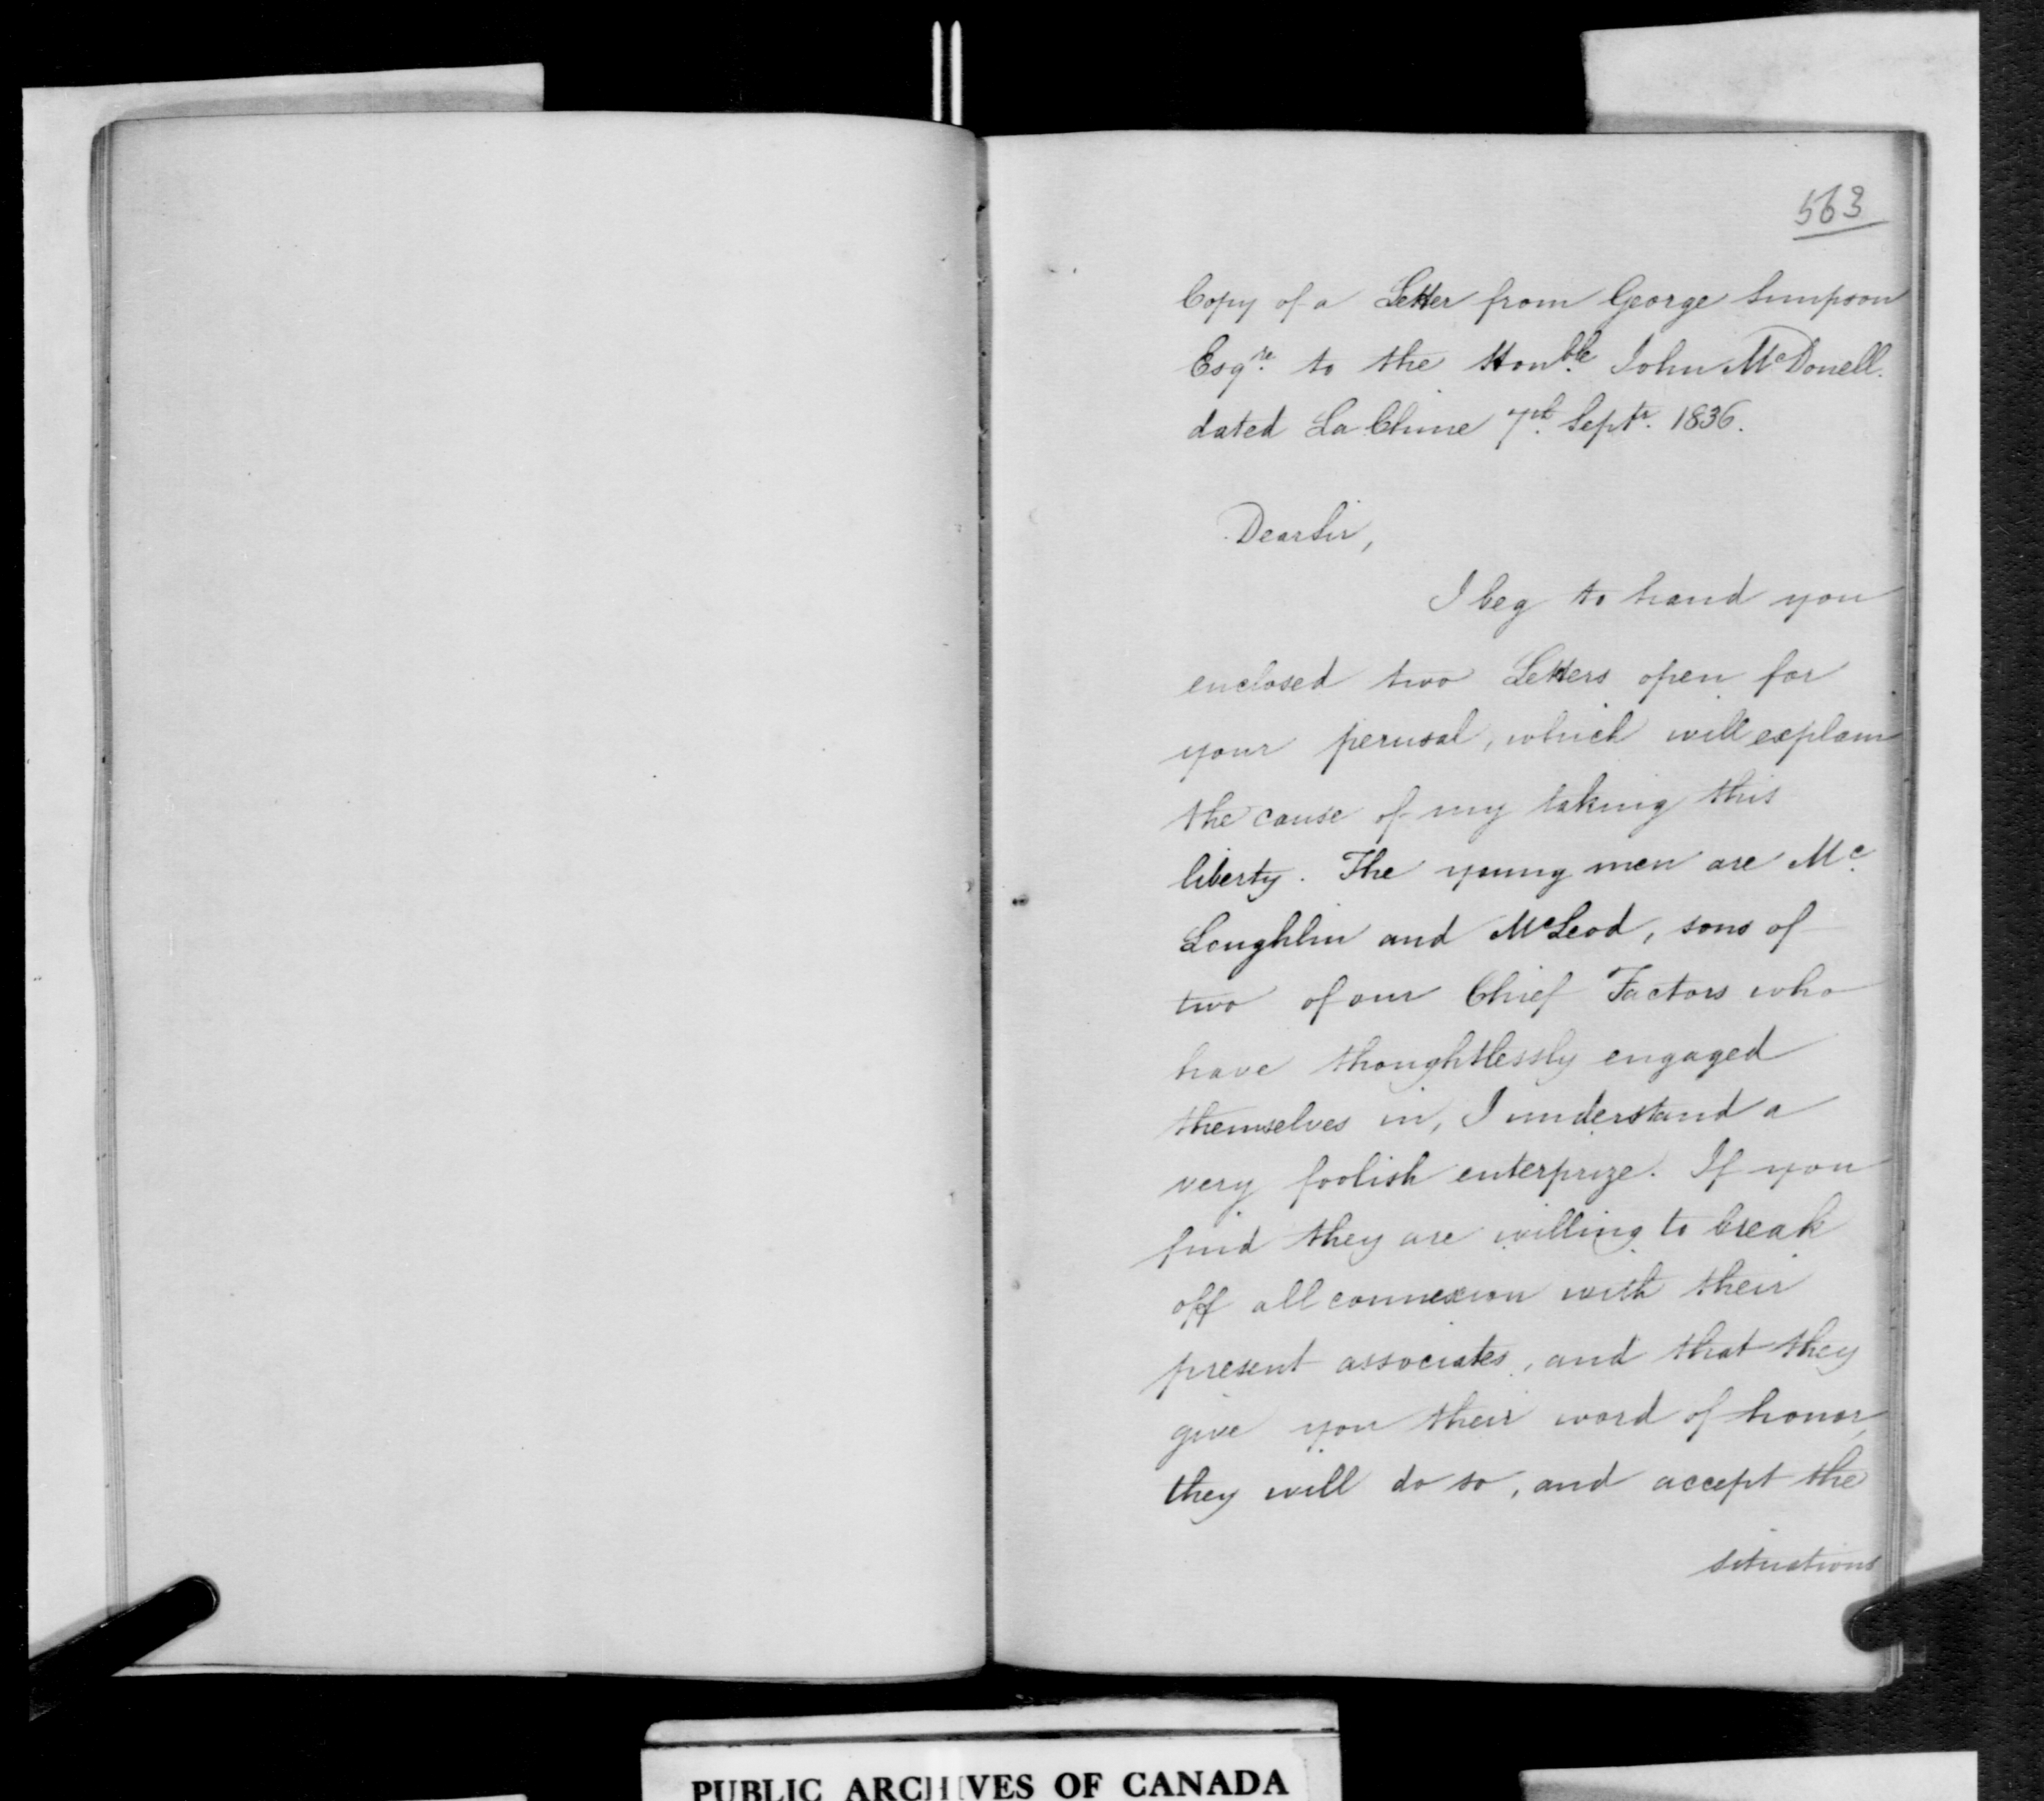 563
Copy of a Letter from George Simpson
Esqre. to the Honble. John McDonell.
dated La Chine 7th. Septr. 1836.
Dear Sir,
I beg to hand you
enclosed two Letters open for
your perusal, which will explain
the cause of my taking this
liberty. The young men are Mc.
Loughlin and McLeod, sons of
two of our Chief Factors who
have thoughtlessly engaged
themselves in, I understand a
very foolish enterprize. If you
find they are willing to break
off all connexion with their
present associates, and that they
give you their word of honor,
they will do so, and accept the
situations
PUBLIC ARCHIVES OF CANADA